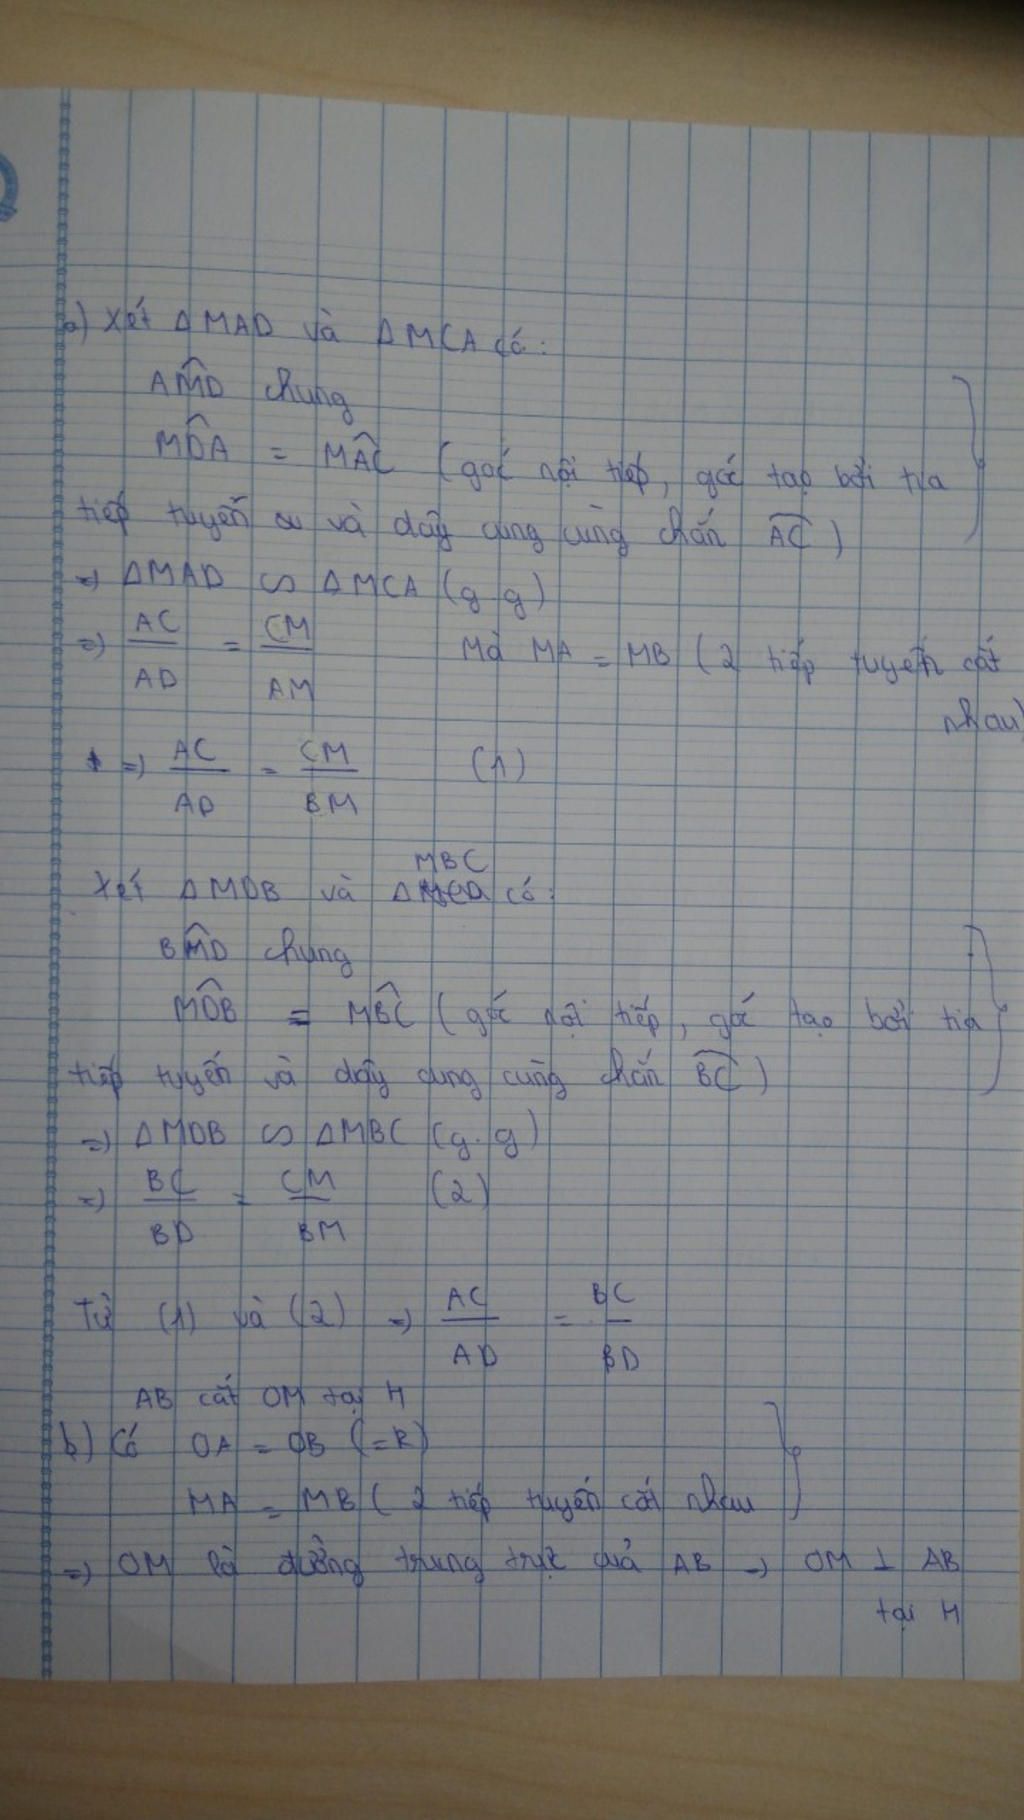 a) Xét ΔMAD và ΔMCA có:
AM̂D chung
MD̂A = MÂC (góc nội tiếp, góc tạo bởi tia
tiếp tuyến và dây cung cùng chắn A͡C)
=> ΔMAD ∽ ΔMCA (g.g)
=> AC/AD = CM/AM Mà MA = MB (2 tiếp tuyến cắt
nhau)
=> AC/AD = CM/BM (1)
Xét ΔMDB và ΔMBC có:
BM̂D chung
MD̂B = MB̂C (góc nội tiếp, góc tạo bởi tia
tiếp tuyến và dây cung cùng chắn B͡C)
=> ΔMDB ∽ ΔMBC (g.g)
=> BC/BD = CM/BM (2)
Từ (1) và (2) => AC/AD = BC/BD
AB cắt OM tại H
b) Có OA = OB (=R)
MA = MB ( 2 tiếp tuyến cắt nhau
=> OM là đường trung trực của AB => OM ⊥ AB
tại H